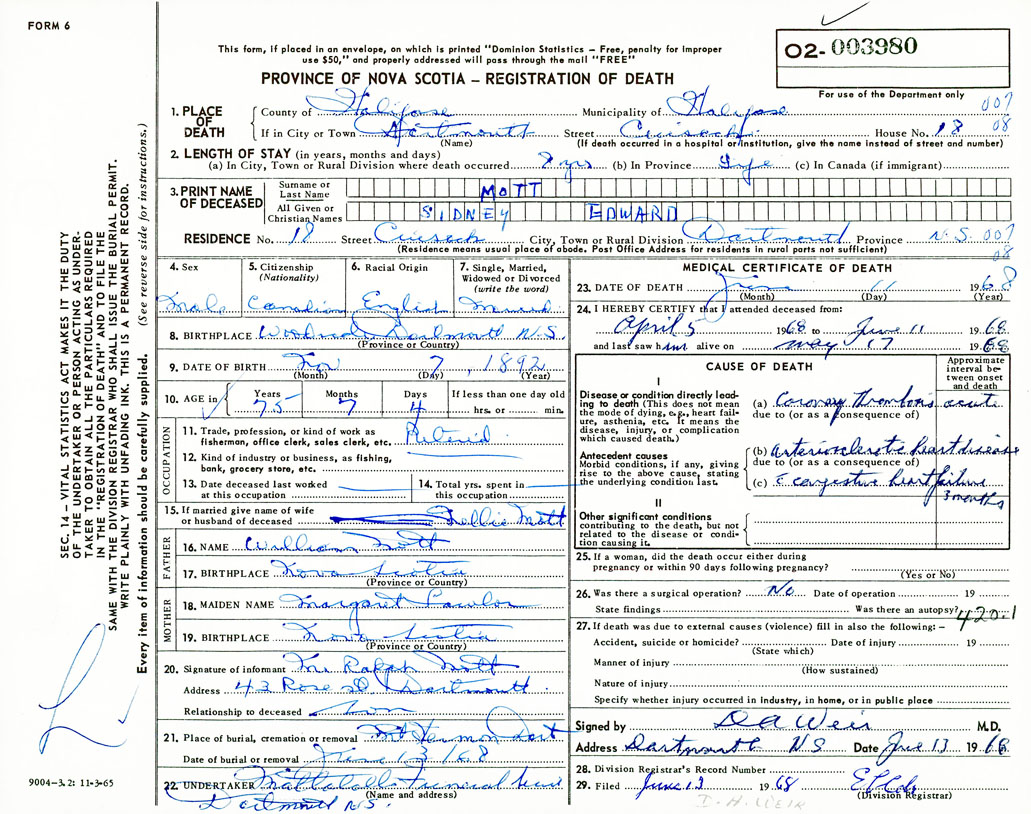 FORM 6
This form, if placed in an envelope, on which is printed "Dominion Statistics – Free, penalty for improper
use $50," and properly addressed will pass through the mail "FREE"
PROVINCE OF NOVA SCOTIA – REGISTRATION OF DEATH
02-003980
For use of the Department only
007
08
1. PLACE OF DEATH
County of Halifax Municipality of Halifax
If in City or Town Dartmouth Street House No. 18
(Name) (If death occurred in a hospital or institution, give the name instead of street and number)
2. LENGTH OF STAY (in years, months and days)
(a) In City, Town or Rural Division where death occurred 8 yrs (b) In Province Life (c) In Canada (if immigrant)
3. PRINT NAME OF DECEASED
Surname or Last Name MOTT
All Given or Christian Names SIDNEY EDWARD
RESIDENCE No. 18 Street City, Town or Rural Division Dartmouth Province N.S. 007
(Residence means usual place of abode. Post Office Address for residents in rural parts not sufficient)
08
4. Sex
Male
5. Citizenship (Nationality)
Canadian
6. Racial Origin
English
7. Single, Married, Widowed or Divorced (write the word)
Married
8. BIRTHPLACE Dartmouth N.S.
(Province or Country)
9. DATE OF BIRTH Nov 7, 1892
(Month) (Day) (Year)
10. AGE in Years Months Days If less than one day old
75 7 4 hrs. or min.
OCCUPATION
11. Trade, profession, or kind of work as
fisherman, office clerk, sales clerk, etc. Retired
12. Kind of industry or business, as fishing,
bank, grocery store, etc.
13. Date deceased last worked
at this occupation
14. Total yrs. spent in
this occupation
15. If married give name of wife
or husband of deceased Nellie Mott
FATHER
16. NAME William Mott
17. BIRTHPLACE Nova Scotia
(Province or Country)
MOTHER
18. MAIDEN NAME Margaret
19. BIRTHPLACE Nova Scotia
(Province or Country)
20. Signature of informant Mr Ralph Mott
Address 43 Rose St Dartmouth.
Relationship to deceased Son
21. Place of burial, cremation or removal Mt Hermon Dart
Date of burial or removal June 13/68
22. UNDERTAKER Funeral
(Name and address)
Dartmouth N.S.
MEDICAL CERTIFICATE OF DEATH
23. DATE OF DEATH June 11 1968
(Month) (Day) (Year)
24. I HEREBY CERTIFY that I attended deceased from:
April 5 1968 to June 11 1968
and last saw him alive on May 17 1968
CAUSE OF DEATH
Approximate interval between onset and death
I
Disease or condition directly leading to death (This does not mean the mode of dying, e.g., heart failure, asthenia, etc. It means the disease, injury, or complication which caused death.)
(a) Coronary Thrombosis acute
due to (or as a consequence of)
Antecedent causes
Morbid conditions, if any, giving rise to the above cause, stating the underlying condition last.
(b) arteriosclerotic heart disease
due to (or as a consequence of)
(c) c congestive heart failure
3 months
II
Other significant conditions
contributing to the death, but not related to the disease or condition causing it.
25. If a woman, did the death occur either during
pregnancy or within 90 days following pregnancy?
(Yes or No)
26. Was there a surgical operation? No Date of operation 19
State findings Was there an autopsy?
420.1
27. If death was due to external causes (violence) fill in also the following: –
Accident, suicide or homicide? Date of injury 19
(State which)
Manner of injury
(How sustained)
Nature of injury
Specify whether injury occurred in industry, in home, or in public place
Signed by D A Weir M.D.
Address Dartmouth NS Date June 13 1968
28. Division Registrar's Record Number
29. Filed June 13 1968
(Division Registrar)
I. H. WEIR
SEC. 14 – VITAL STATISTICS ACT MAKES IT THE DUTY
OF THE UNDERTAKER OR PERSON ACTING AS UNDER-
TAKER TO OBTAIN ALL THE PARTICULARS REQUIRED
IN THE "REGISTRATION OF DEATH" AND TO FILE THE
SAME WITH THE DIVISION REGISTRAR WHO SHALL ISSUE THE BURIAL PERMIT.
WRITE PLAINLY WITH UNFADING INK. THIS IS A PERMANENT RECORD.
Every item of information should be carefully supplied. (See reverse side for instructions.)
9004-3.2: 11-3-65